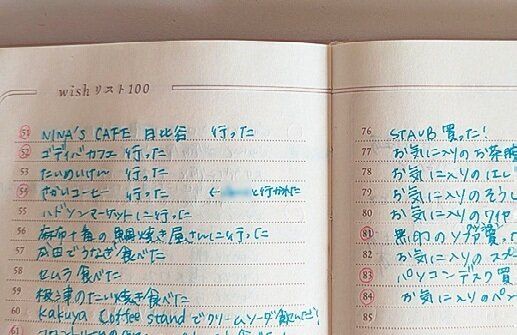 wishリスト100
51 NINA'S CAFE 日比谷 行った
52 ゴディバカフェ 行った
53 たいめいけん 行った
54 さかいコーヒー 行った ← と行かれた
55 ハドソンマーケットに行った
56 麻布十番の鯛焼き屋さんに行った
57 成田でうなぎ食べた
58 セムラ食べた
59 根津のたい焼き食べた
60 Kakuya Coffee standでクリームソーダ飲んだ!
61
76 STAUB 買った!
77 お気に入りのお茶碗
78 お気に入りの
79 お気に入りのそうじ
80 お気に入りのワイヤ
81 無印のソファ買った
82 お気に入りのスプ
83 パソコンデスク買
84 お気に入りのペン
85